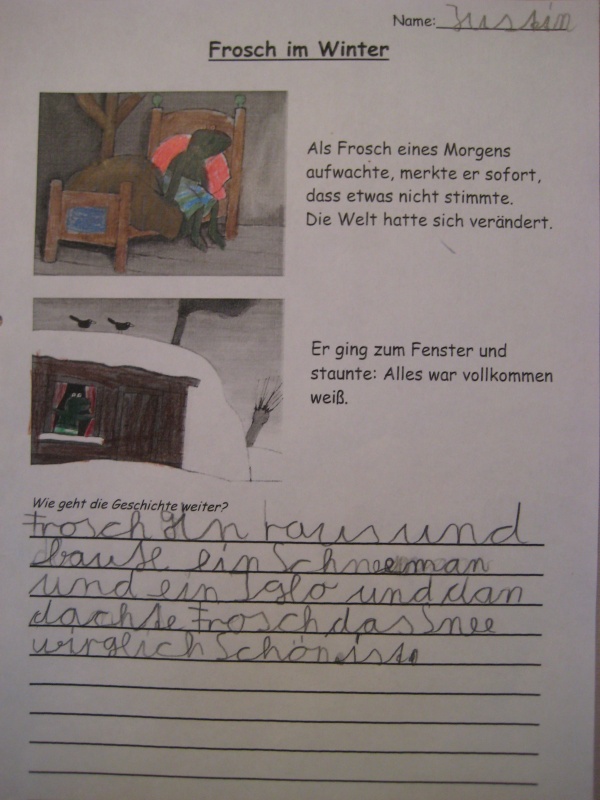 Name: Justin
Frosch im Winter
Als Frosch eines Morgens
aufwachte, merkte er sofort,
dass etwas nicht stimmte.
Die Welt hatte sich verändert.
Er ging zum Fenster und
staunte: Alles war vollkommen
weiß.
Wie geht die Geschichte weiter?
Frosch raus und
baute ein Schneeman
und ein Iglo und dan
dachte Frosch das Snee
wirglich Schön ist.